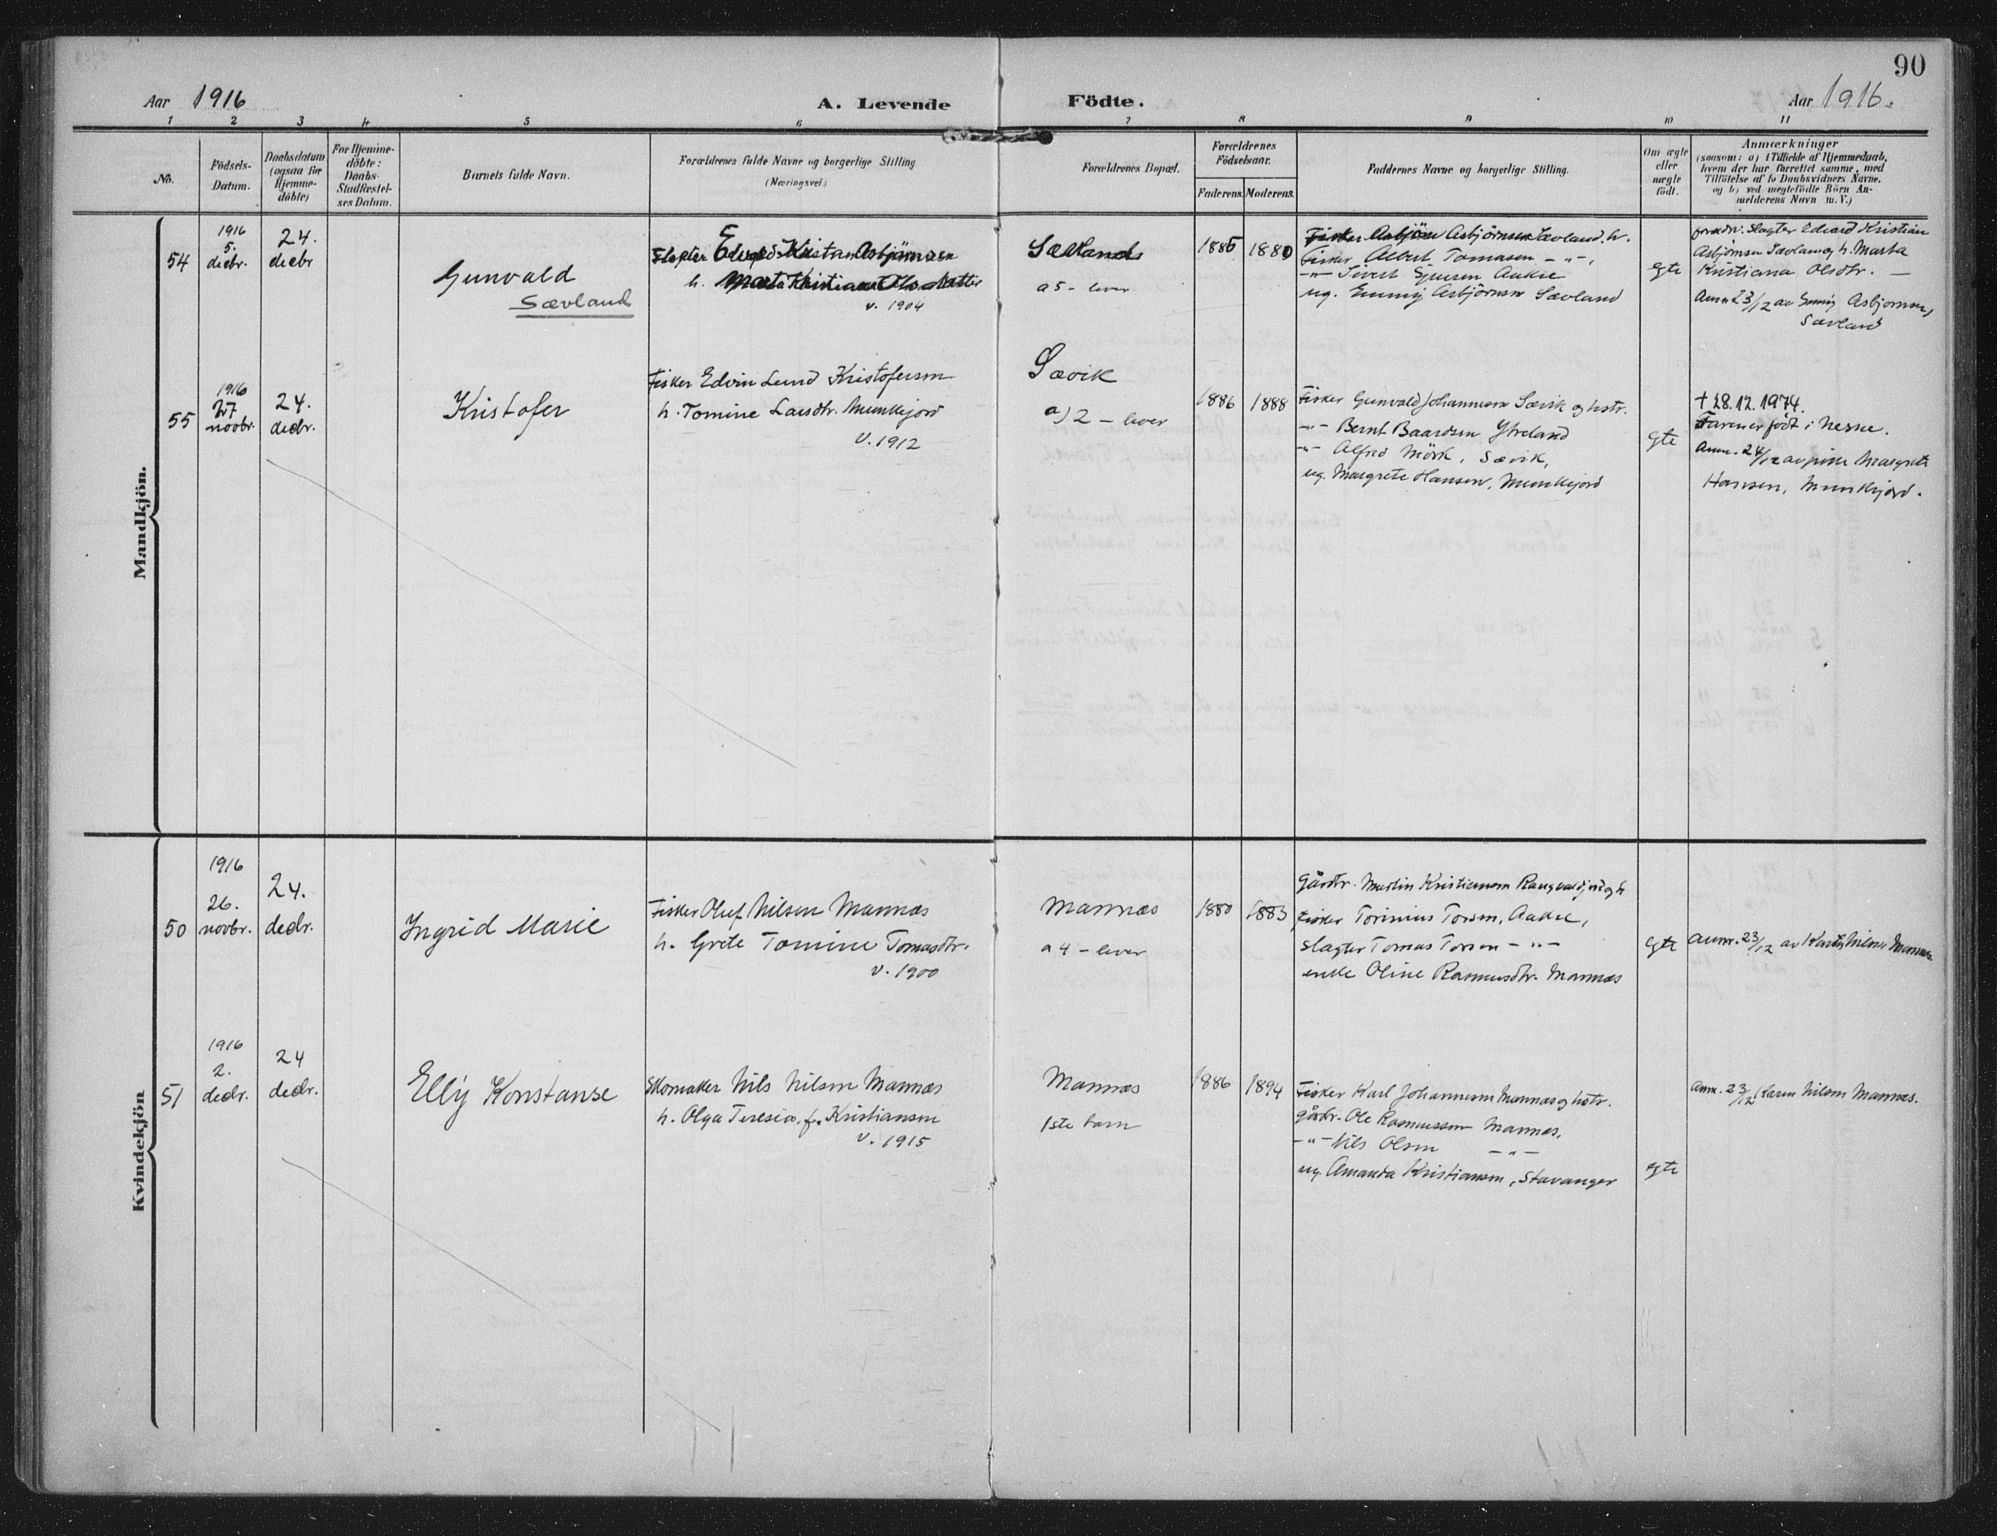 90
Aar 1916
A. Levende
Födte.
Aar 1916.
1 2 3 4 5 6 7 8 9 10 11
No.
Födsels-
Datum.
Daabsdatum
(ogsaa for
Hjemme-
döbte)
For Hjemme-
döbte:
Daabs-
Stadfæstel-
ses Datum.
Barnets fulde Navn.
Forældrenes fulde Navne og borgerlige Stilling
(Næringsvei)
Forældrenes Bopæl.
Forældrenes
Födselsaar.
Faderens. Moderens.
Faddernes Navne og borgerlige Stilling.
Om ægte
eller
uægte
födt.
Anmærkninger
(saasom: a) i Tilfælde af Hjemmedaab,
hvem der har forrettet samme, med
Tilföielse af to Daabsvidners Navne.
og b) ved uægtefödte Börn An-
melderens Navn m. V.)
Mandkjön.
54
1916
5.
decbr.
24.
decbr
Gunvald
Sævland
Slagter Edvard Kristian Asbjörnsen
h. Marta Kristiana Olsdatter
v. 1904
Sævland
a 5 - lever
1885
1880
Fisker Asbjörn Asbjörnsen Sævland. h.
Fisker Albert Tomasen - " - ,
- " - Sivert Sjursen Aakre
ug. Emmy Asbjörnsen Sævland
egte
foreldr. Slagter Edvard Kristian
Asbjörnsen Sævland og h. Marta
Kristiana Olsdtr. -
Anm. 23/12 av Emmy Asbjörnsen,
Sævland
55
1916
27
novbr.
24.
decbr.
Kristofer
Fisker Edvin Lund Kristofersen
h. Tomine Larsdtr. Munkejord
V. 1912
Sævik
a) 2 - lever
1886
1888
Fisker Gunvald Johannesen Sævik og hstr.
- " - Bernt Baardsen Ytreland
- " - Alfred Mörk, Sævik,
ug. Margrete Hansen, Munkejord
egte
+ 28.12.1974.
Farener födt i Nesne.
Anm. 24/12 av pike Margrete
Hansen, Munkejord.
Kvindekjön
50
1916
26.
novbr.
24.
decbr.
Ingrid Marie
Fisker Oluf Nilsen Mannæs
h. Grete Tomine Tomasdtr.
v. 1900
Mannæs
a 4 - lever
1880
1883
Gårdbr. Martin Kristiansen Rangvaldjord og h
Fisker Torinius Torsen, Aakre,
Slagter Tomas Torsen - " -
enke Oline Rasmusdtr. Mannæs
egte
anm. 23/12 av Karty Nilsen Mannæs
51
1916
2.
decbr.
24
decbr.
Elly Konstanse
Skomaker Nils Nilsen Mannæs
h. Olga Teresia f. Kristiansen
v. 1915
Mannæs
1ste barn
1886
1894
Fisker Karl Johannesen Mannæs og hstr.
Gårdbr. Ole Rasmussen Mannæs,
- " - Nils Olsen - " -
ug. Amanda Kristiansen, Stavanger
egte
anm. 23/12 Karen Nilsen Mannæs.